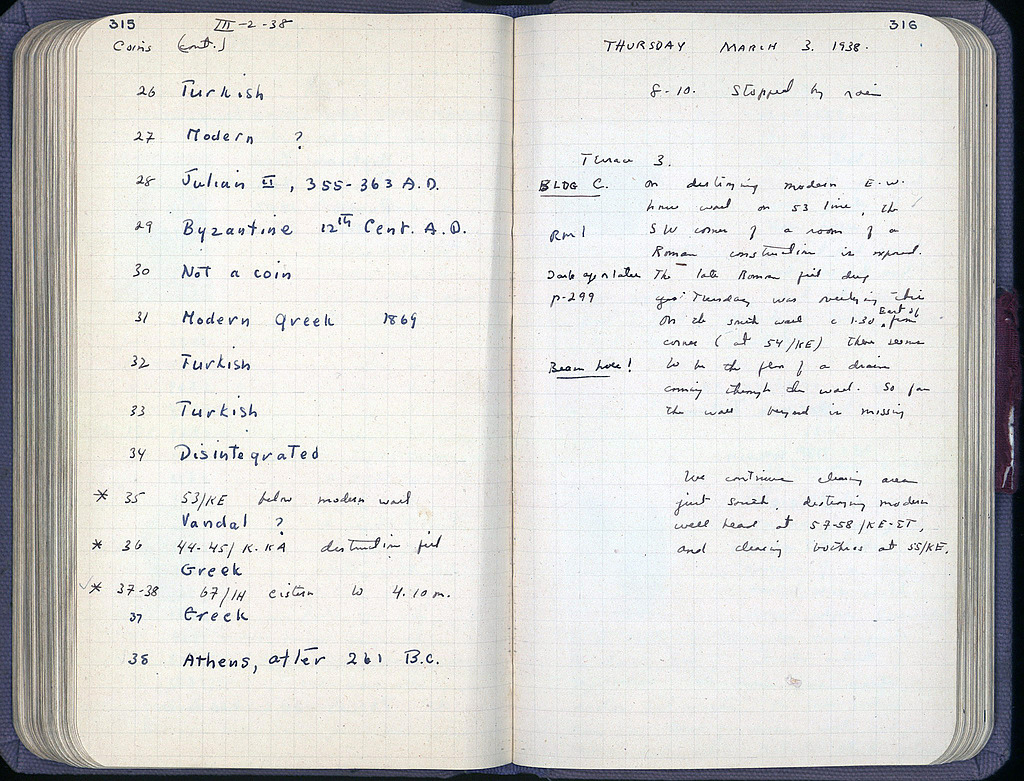 315 III-2-38
Coins (cont.)
26 Turkish
27 Modern ?
28 Julian II, 355-363 A.D.
29 Byzantine 12th Cent. A.D.
30 Not a coin
31 Modern Greek 1869
32 Turkish
33 Turkish
34 Disintegrated
* 35 53/KE below modern wall
Vandal ?
* 36 44-45/K-KA destruction fill
Greek
✓ * 37-38 67/IH cistern to 4.10 m.
37 Greek
38 Athens, after 261 B.C.
316
THURSDAY MARCH 3. 1938.
8-10. Stopped by rain
3.
BLDG C. On destroying modern E.W.
house wall on 53 line, the
Rm 1 SW corner of a room of a
Roman construction is exposed.
Dark age or later The late Roman fill dug
p-299 Tuesday was overlying this
On the south wall c 1.30 East of from
corner (at 54/KE) there seems
Beam hole! to be the of a drain
coming through the wall. So far
the wall beyond is missing
We continue clearing area
just south, destroying modern
well head at 57-58/KE-ΣT,
and clearing bothros at 55/KE.